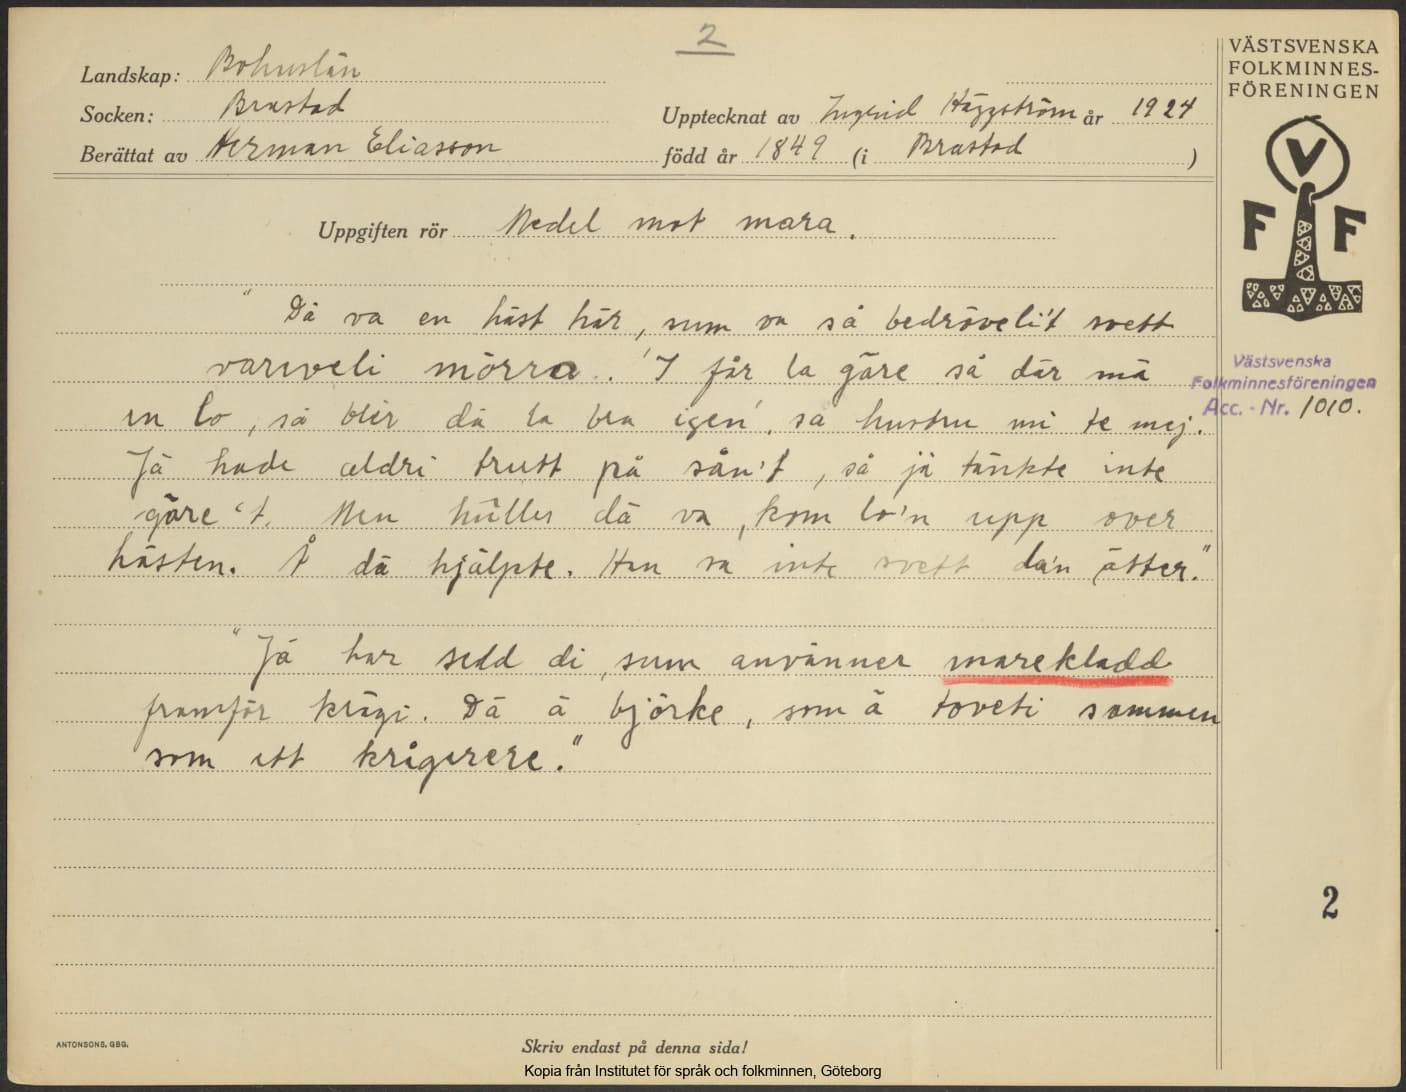 2
Landskap: Bohuslän
Socken: Brastad
Upptecknat av Ingrid Häggström år 1924
Berättat av Herman Eliasson född år 1849 (i Brastad)
VÄSTSVENSKA
FOLKMINNES-
FÖRENINGEN
V
F F
Uppgiften rör Medel mot mara.
"Dä va en häst här, sum va så bedröveli't svett
vareveli mörra. 'I får la gäre så där mä
en lo, så blir dä la bra igen', sa hustru mi te mej.
Jä hade aldri trutt på sån't, så jä tänkte inte
gäre 't. Men hülles dä va, kom lo'n upp över
hästen. Å dä hjälpte. Han va inte svett da'n ätter."
"Jä har sedd di, sum använner marekladd
framför krägi. Dä ä björke, som ä toveti sammen
som ett krågerere."
Västsvenska
Folkminnesföreningen
Acc. - Nr. 1010.
2
ANTONSONS, GBG.
Skriv endast på denna sida!
Kopia från Institutet för språk och folkminnen, Göteborg